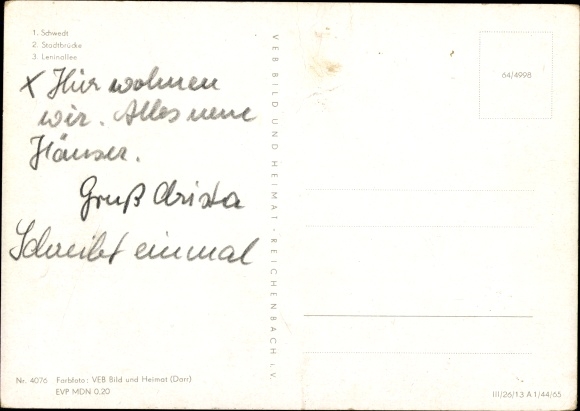 1. Schwedt
2. Stadtbrücke
3. Leninallee
x Hier wohnen
wir. Alles neue
Häuser.
Gruß Christa
Schreibt einmal
VEB BILD UND HEIMAT · REICHENBACH I. V.
64/4998
Nr. 4076 Farbfoto: VEB Bild und Heimat (Darr)
EVP MDN 0.20
III/26/13 A 1/44/65